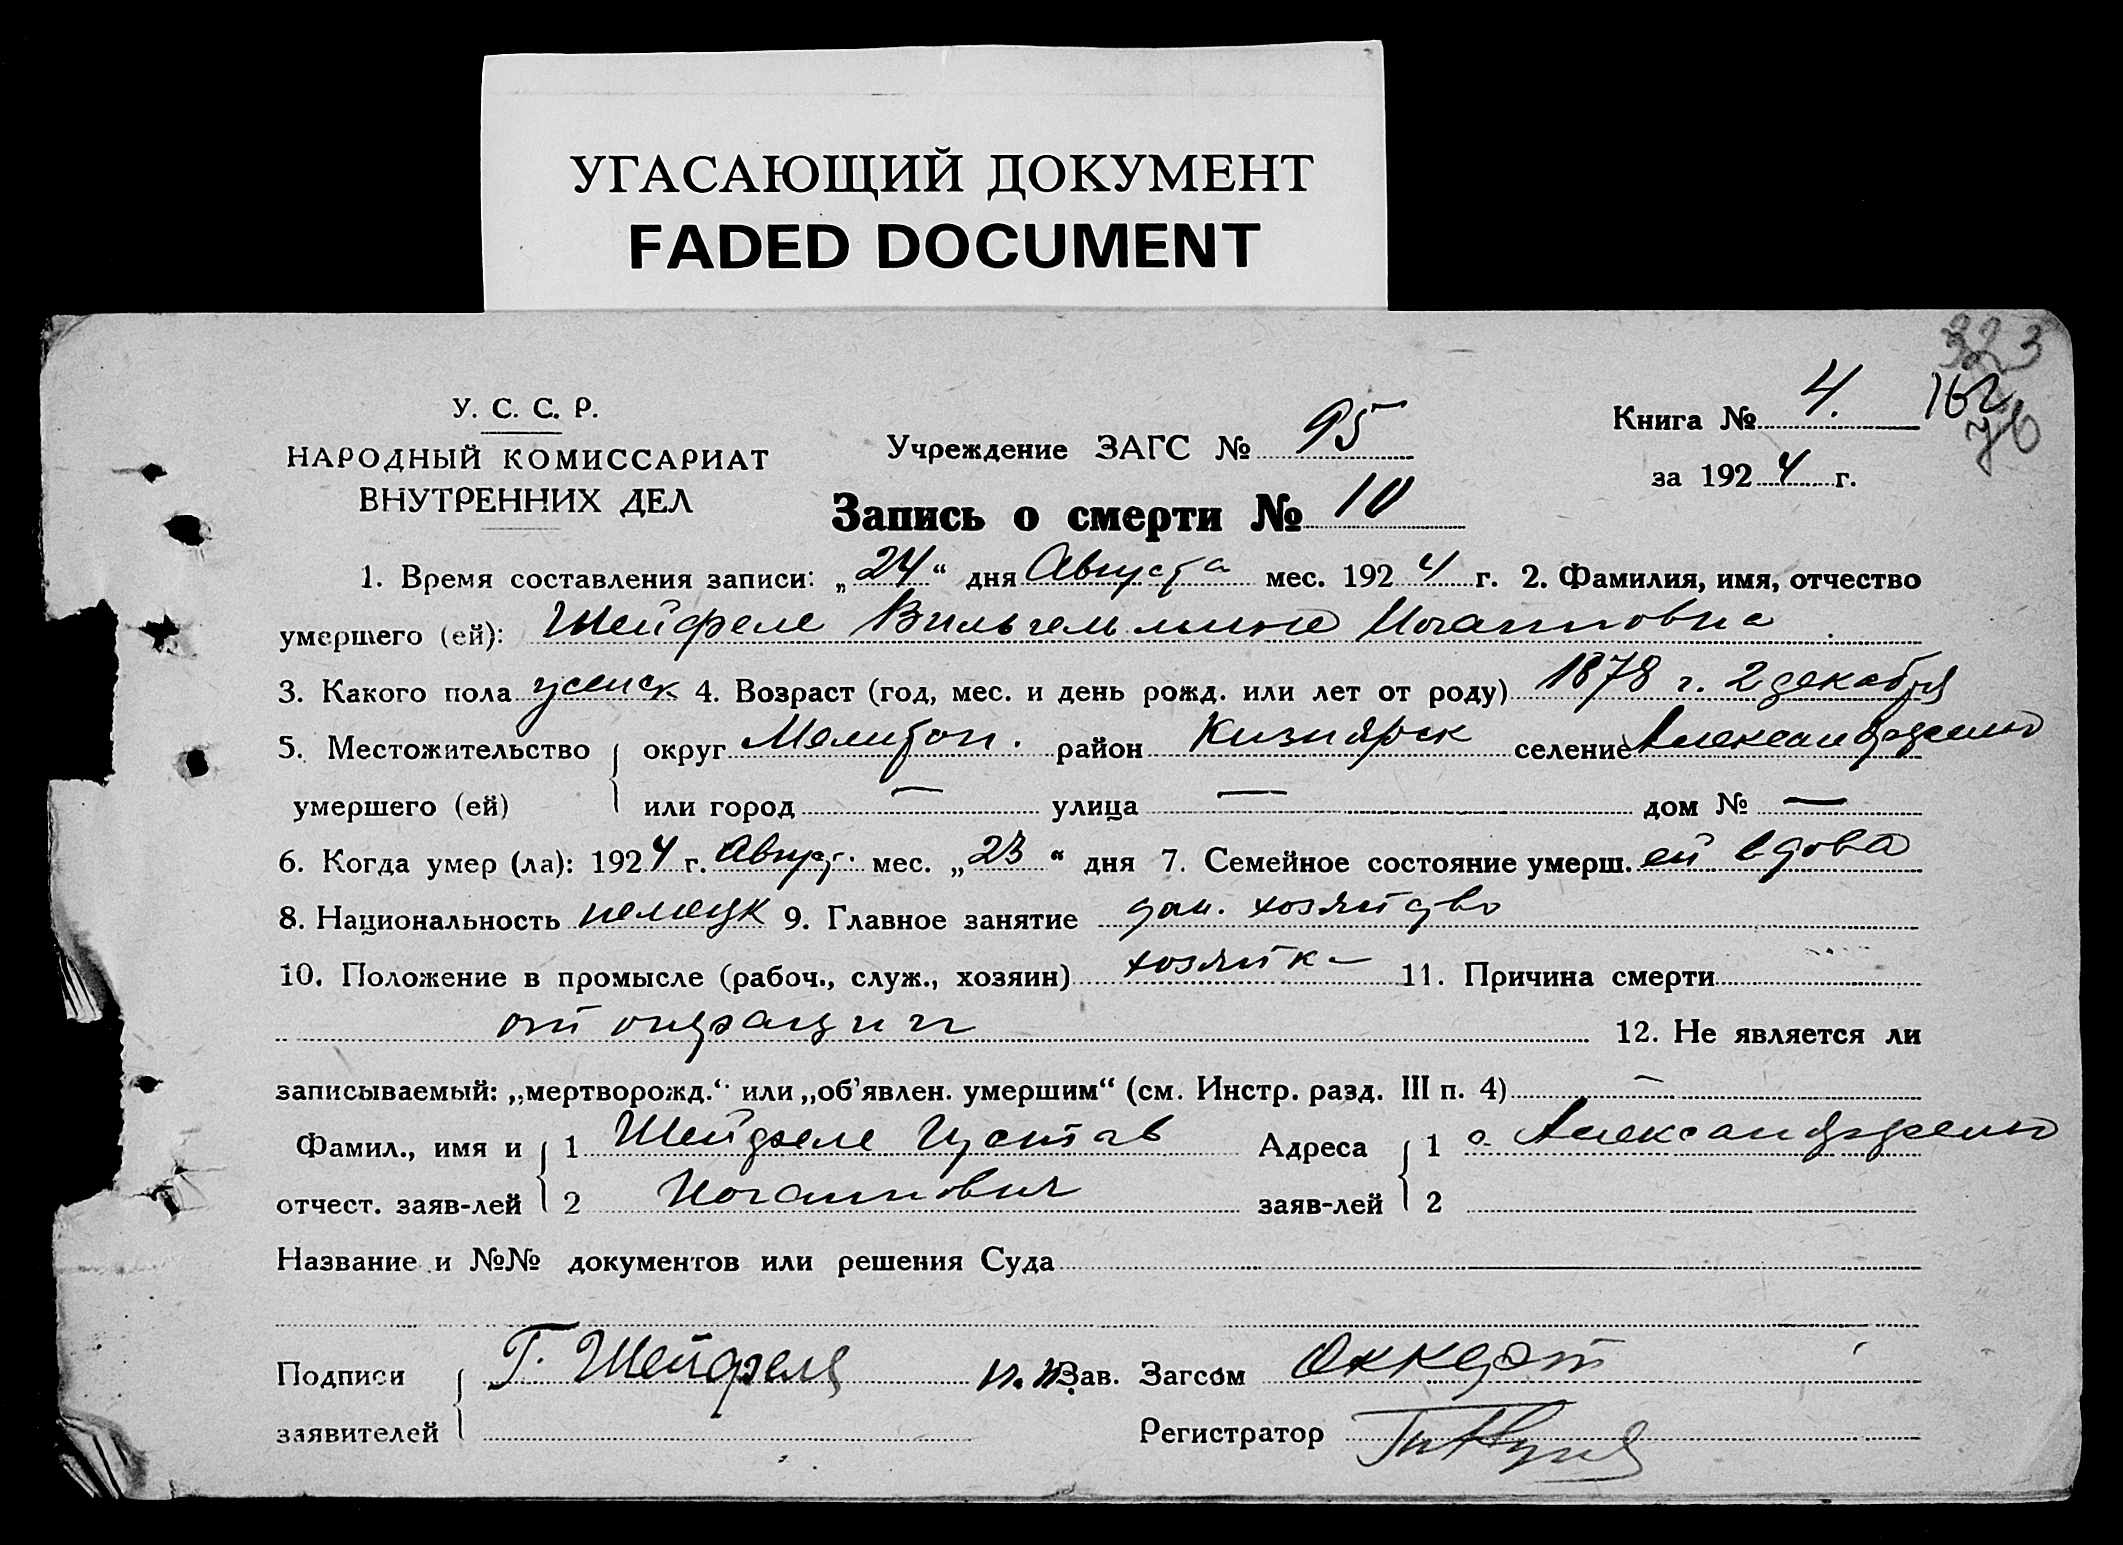 УГАСАЮЩИЙ ДОКУМЕНТ
FADED DOCUMENT
323
162
76
У. С. С. Р.
НАРОДНЫЙ КОМИССАРИАТ
ВНУТРЕННИХ ДЕЛ
Учреждение ЗАГС № 95
Книга № 4.
за 1924 г.
Запись о смерти № 10
1. Время составления записи: „24“ дня Августа мес. 1924 г. 2. Фамилия, имя, отчество
умершего (ей): Шейфеле Вильгельмине Иогановна
3. Какого пола женск 4. Возраст (год, мес. и день рожд. или лет от роду) 1878 г. 2 декабря
5. Местожительство округ Мелитоп. район Кизиярск селение Александрфельд
умершего (ей) или город — улица — дом № —
6. Когда умер (ла): 1924 г. Август. мес. „23“ дня 7. Семейное состояние умерш. ей вдова
8. Национальность немецк 9. Главное занятие дом. хозяйство
10. Положение в промысле (рабоч., служ., хозяин) хозяйка 11. Причина смерти
от 12. Не является ли
записываемый: „мертворожд.“ или „об'явлен. умершим“ (см. Инстр. разд. III п. 4) —
Фамил., имя и 1 Шейфеле Густав Адреса 1 с. Александрфельд
отчест. заяв-лей 2 Иоганович заяв-лей 2
Название и №№ документов или решения Суда
Подписи Г. Шейфеле Зав. Загсом Оккерт
заявителей Регистратор